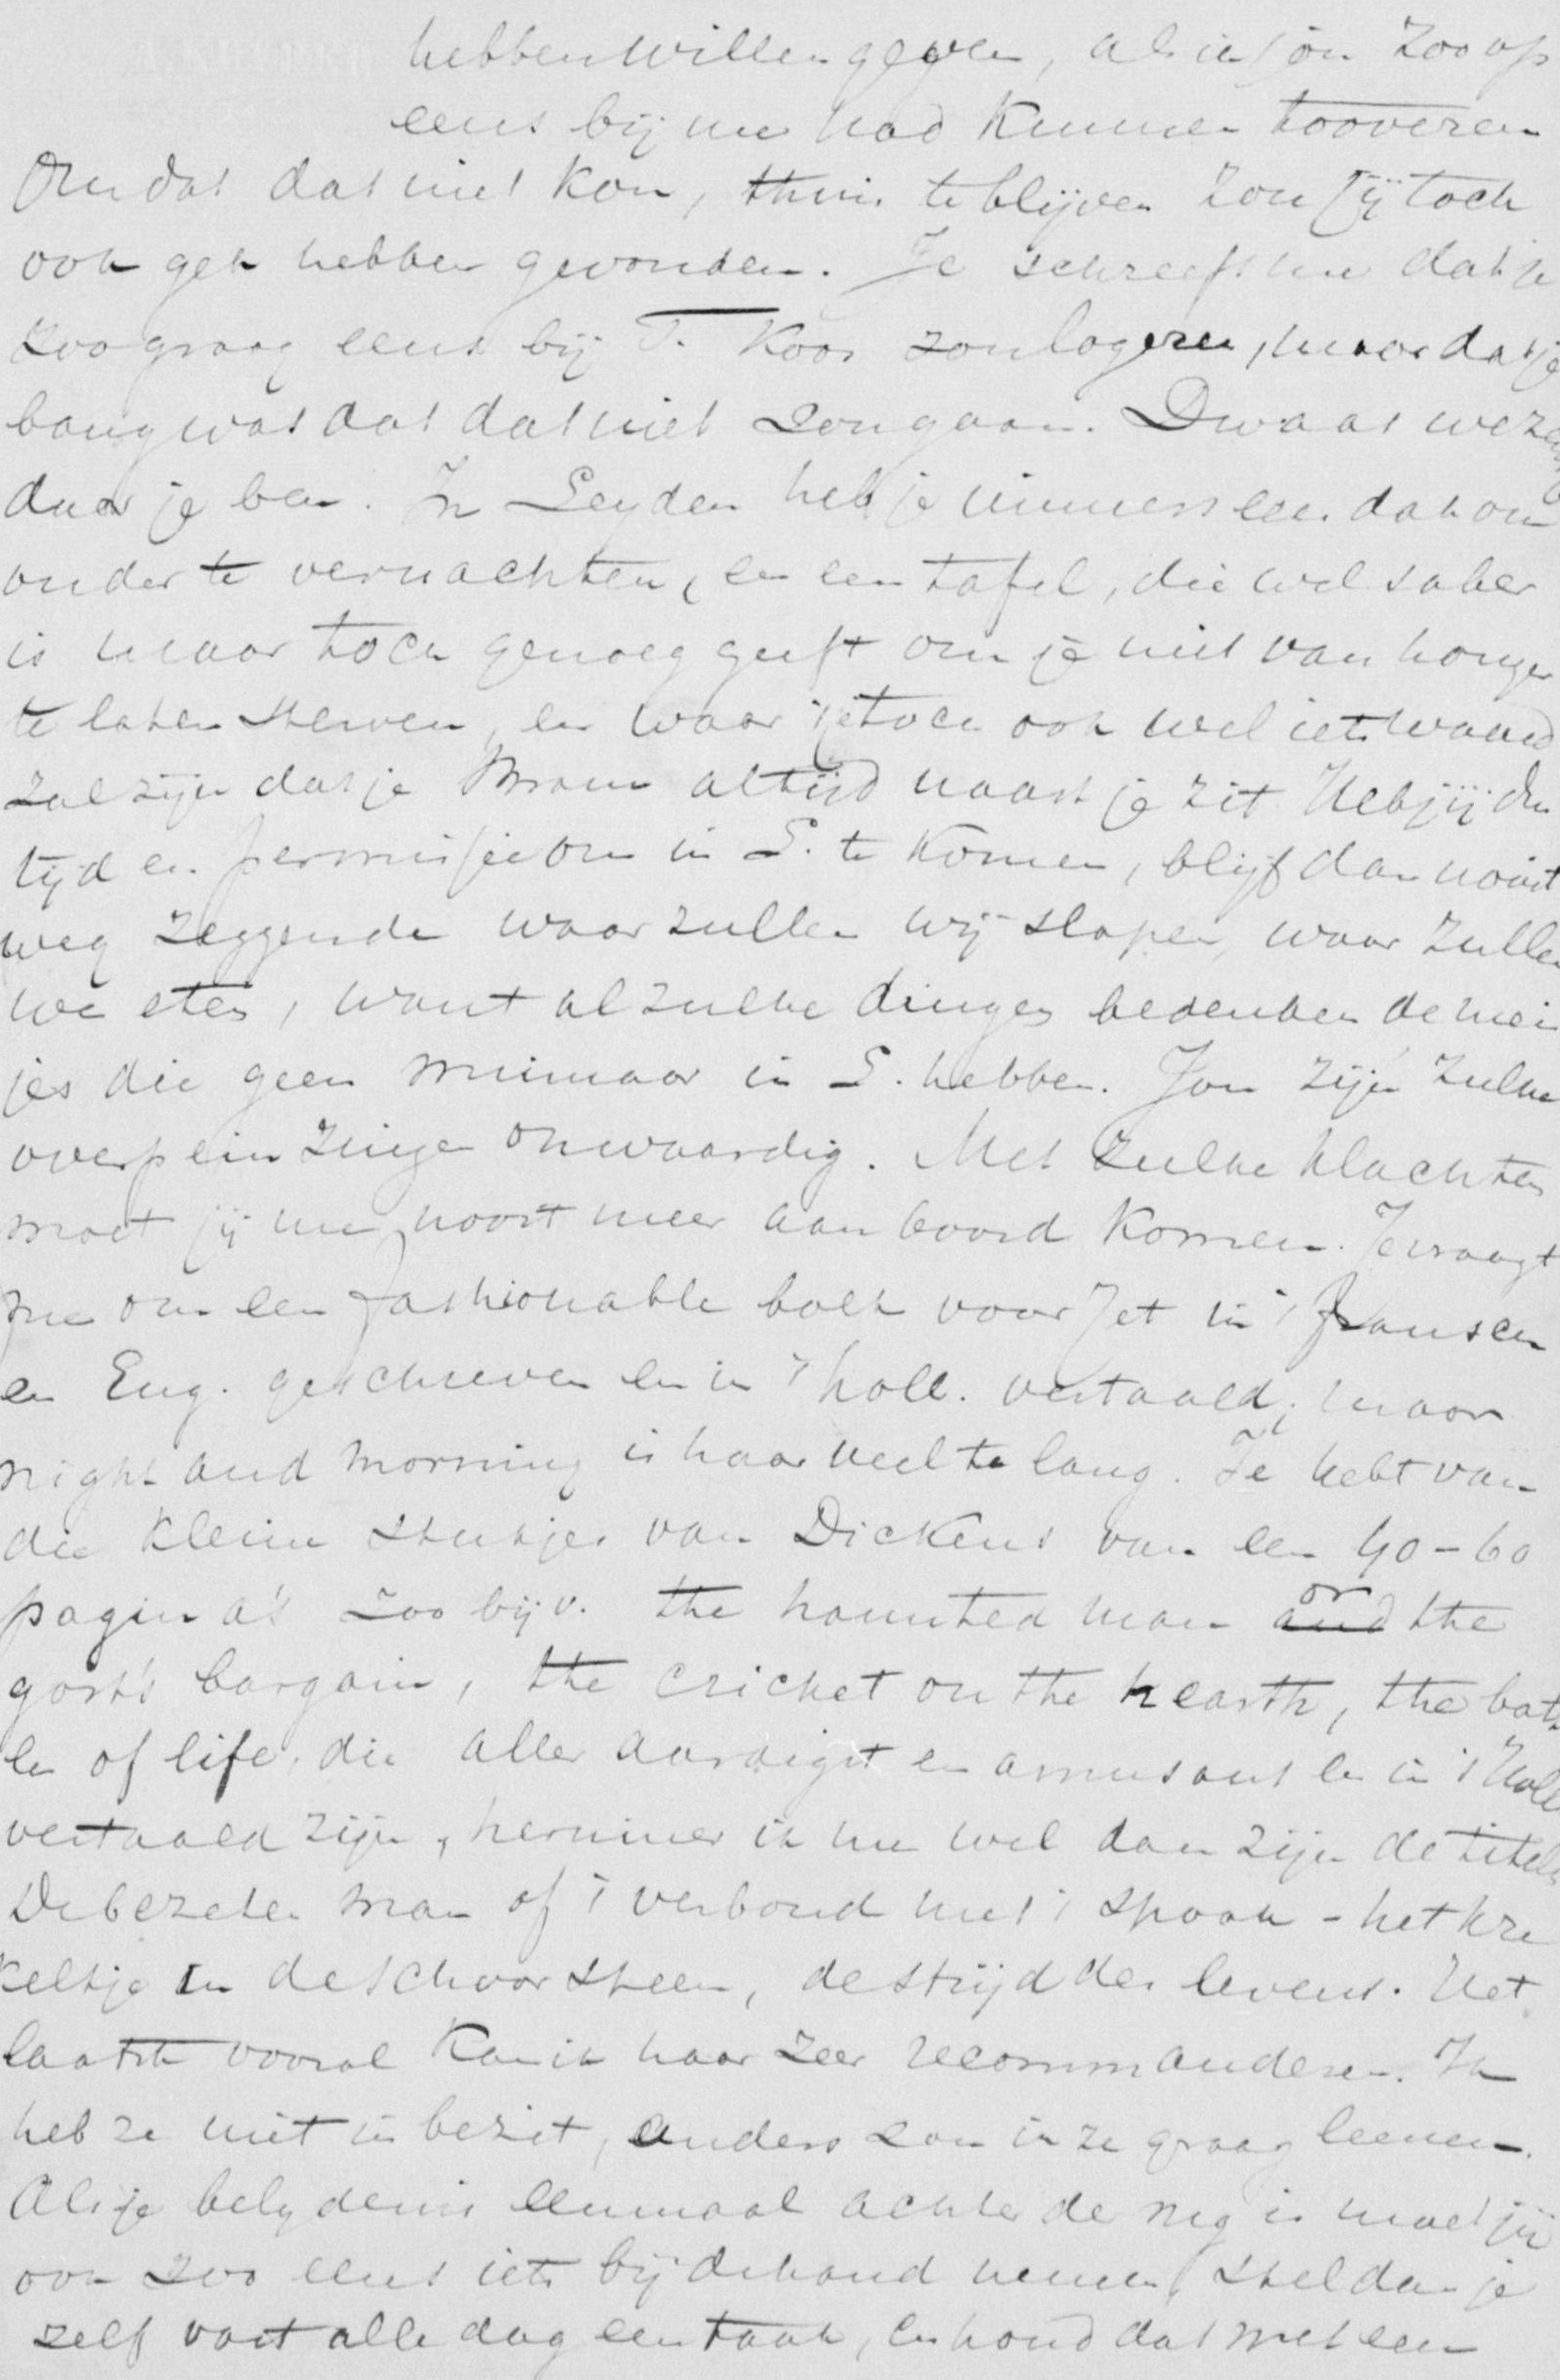 hebben willen geven, als ik jou zoo op
eens bij me had kunnen tooveren
Omdat dat niet kon, thuis te blijven zou jij toch
ook gek hebben gevonden. Je schreeft me dat je
zoo graag eens bij T. Koos zou logeren, maar dat je
bang was dat dat niet zou gaan. Dwaas wezen
daar je ben. In Leyden heb je immers een dak om
onder te vernachten, en een tafel, die wel sober
is maar toch genoeg geeft om je niet van honger
te laten sterven, en waar 't je toch ook wel iets waard
zal zijn dat je Bram altijd naast je zit. Heb jij den
tijd en permissie om in L. te komen, blijf dan nooit
weg zeggende waar zullen wij slapen, waar zullen
we eten, want al zulke dingen bedenken de meis
jes die geen minnaar in L. hebben. Jou zijn zulke
overpeinzingen onwaardig. Met zulke klachten
moet jij me nooit meer aan boord komen. Je vraagt
me om een fashionable boek voor Jet in 't fransch
en Eng. geschreven en in 't holl. vertaald; maar
night and morning is haar veel te lang. Je hebt van
die kleine stukjes van Dickens van een 40-60
pagina's zoo bijv. the haunted man and or the
gost's bargain, the cricket on the hearth, the batt
le of life, die aller aardigst en amusant en in 't Holl
vertaald zijn, herinner ik me wel dan zijn de titels
De bezeten man of 't verbond met 't spook - het kre
keltje in de schoorsteen, de strijd des levens. Het
laatste vooral kan ik haar zeer recommanderen. Ik
heb ze niet in bezit, anders zou ik ze graag leenen.
Als je belydenis eenmaal achter de rug is moet jij
ook zoo eens iets bij de hand nemen, stel dan je
zelf vast alle dag een taak, en houd dat met een